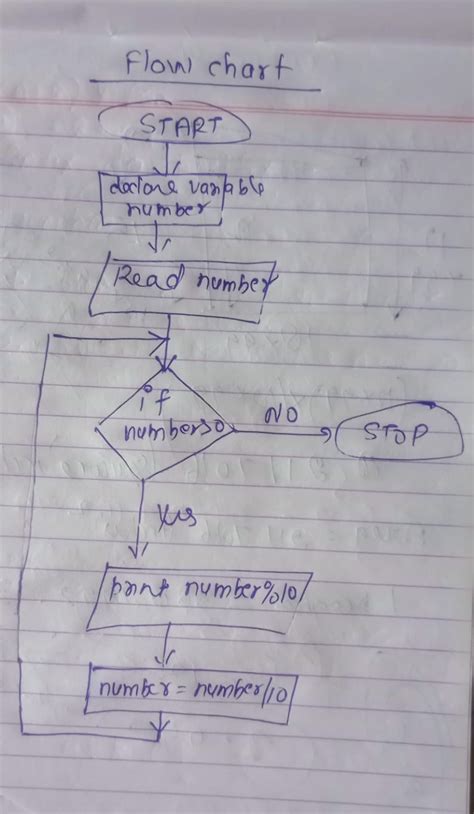 Flow chart
START
declare variable
number
Read number
if
number>0
NO
STOP
Yes
print number%10
number = number/10